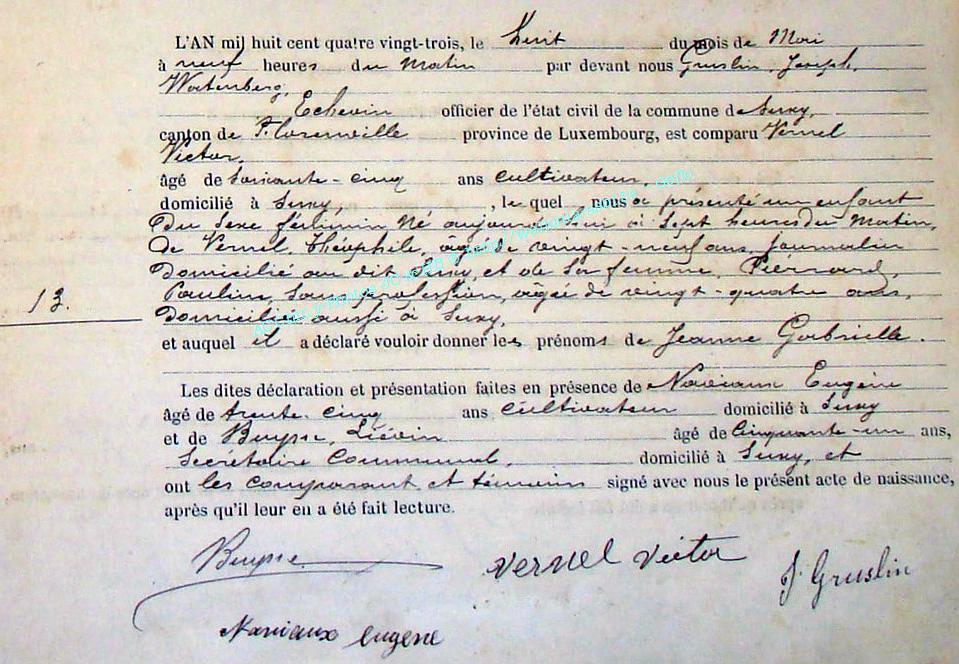 L'AN mil huit cent quatre vingt-trois, le huit du mois de Mai
à neuf heures du Matin par devant nous Gruslin, Joseph,
Echevin officier de l'état civil de la commune de Suxy,
canton de Florenville province de Luxembourg, est comparu Vernel
Victor,
âgé de Soixante-cinq ans cultivateur,
domicilié à Suxy, , le quel, nous a présenté un enfant
Du Sexe féminin Né aujourd'hui à Sept heures du Matin,
de Vernel, Théophile, âgé de vingt-neuf ans, Journalier
Domicilié au dit Suxy, et de Sa femme, Piérrard,
Paulin, Sans profession, âgée de vingt-quatre ans,
domiciliée aussi à Suxy,
13.
et auquel il a déclaré vouloir donner les prénoms de Jeanne Gabrielle.
Les dites déclaration et présentation faites en présence de Naviaux Eugène
âgé de trente-cinq ans cultivateur domicilié à Suxy
et de Buysse, Liévin âgé de Cinquante-un ans,
Secrétaire Communal, domicilié à Suxy, et
ont les comparant et témoins signé avec nous le présent acte de naissance,
après qu'il leur en a été fait lecture.
Buysse
Vernel Victor
J Gruslin
Naviaux Eugène